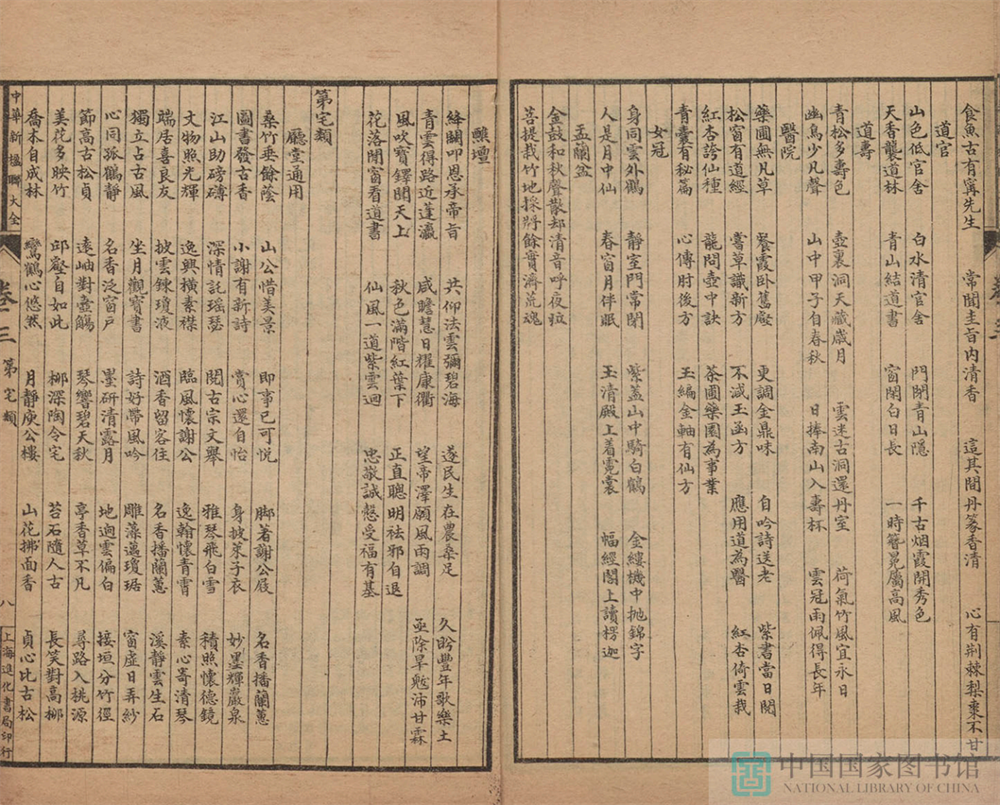 食魚古有寗先生　常聞圭旨內清香　這其間丹篆香清　心有荆棘梨棗不甘
道官
山色低官舍　白水清官舍　門閉青山隱　千古烟霞開秀色
天香襲道林　青山結道書　窗閑白日長　一時簪冕屬高風
道壽
青松多壽色　壺裏洞天藏歲月　雲迷古洞還丹室　荷氣竹風宜永日
幽鳥少凡聲　山中甲子自春秋　日捧南山入壽杯　雲冠雨佩得長年
醫院
藥圃無凡草　餐霞卧舊廬　更調金鼎味　自吟詩送老　紫書當日閱
松窗有道經　嘗草識新方　不減玉函方　應用道為醫　紅杏倚雲栽
紅杏誇仙種　龍問壺中訣　茶圃藥園為事業
青囊有秘篇　心傳肘後方　玉編金軸有仙方
女冠
身同雲外鶴　靜室門常閉　紫蓋山中騎白鶴　金縷機中拋錦字
人是月中仙　春窗月伴眠　玉清殿上着霓裳　蝠經閣上讀楞迦
盂蘭盆
金鼓和秋聲散却清音呼夜竝
菩提栽竹地採將餘實濟荒魂
醮壇
絳闕叩恩承帝旨　共仰法雲彌碧海　遂民生在農桑足　久盼豐年歌樂土
青雲得路近蓬瀛　咸瞻慧日耀康衢　望帝澤願風雨調　亟除旱魃沛甘霖
風吹寶鐸聞天上　秋色滿階紅葉下　正直聰明祛邪自退
花落閒窗看道書　仙風一道紫雲迴　忠敬誠慤受福有基
第宅類
廳堂通用
桑竹垂餘蔭　山公惜美景　即事已可悅　脚著謝公屐　名香播蘭蕙
圖書發古香　小謝有新詩　賞心還自怡　身披萊子衣　妙墨輝巖泉
江山助磅礡　深情託瑶瑟　閱古宗文舉　雅琴飛白雪　積照懷德鏡
文物照光輝　逸興橫素襟　臨風懷謝公　逸翰懷青霄　素心寄清琴
端居喜良友　披雲鍊瓊液　酒香留客住　名香播蘭蕙　溪靜雲生石
獨立占古風　坐月觀寶書　詩好帶風吟　雕藻邁瓊琚　窗虛日弄紗
心同孤鶴靜　名香泛窗戶　墨研清露月　地迥雲偏白　接垣分竹徑
節高古松貞　遠岫對壺觴　琴響碧天秋　亭香草不凡　尋路入桃源
美花多映竹　邱壑自如此　柳深陶令宅　苔石隨人古　長笑對高柳
喬木自成林　鸞鶴心悠然　月靜庾公樓　山花拂面香　貞心比古松
中華新楹聯大全
卷三　第宅類　八　上海進化書局印行
中国国家图书馆
NATIONAL LIBRARY OF CHINA